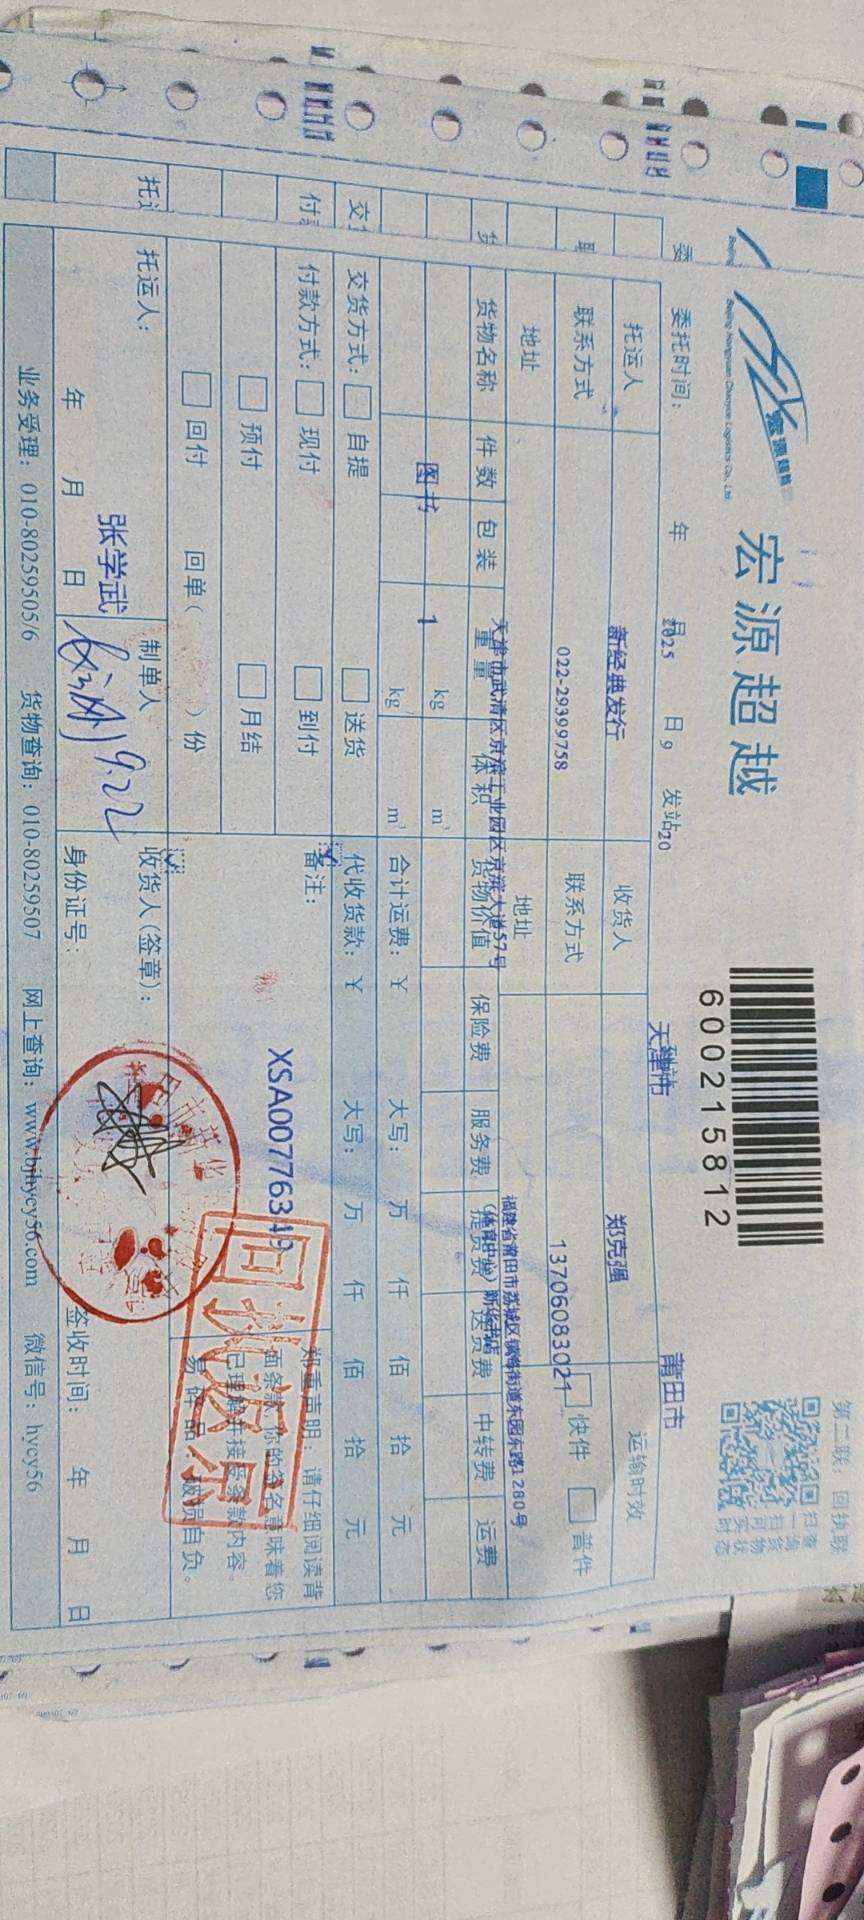 宏源超越
Beijing Hongyuan Chaoyue Logistics Co., Ltd
600215812
第二联：回执联
扫一扫可实时
查询货物状态
委托时间： 年 月 日 发站
2025 9 20
天津市 莆田市
托运人 新经典发行 收货人 郑克强 运输时效
联系方式 022-29399758 联系方式 13706083021 快件 普件
地址 天津市武清区京滨工业园区京滨大道57号 地址 福建省莆田市荔城区镇海街道东园东路1280号
（体育中心）新华书店
货物名称 件数 包装 重量 体积 货物价值 保险费 服务费 提货费 送货费 中转费 运费
图书 1 kg m³
kg m³ 合计运费：￥ 大写： 万 仟 佰 拾 元
交货方式： 自提 送货 代收货款：￥ 大写： 万 仟 佰 拾 元
付款方式： 现付 到付 备注：
预付 月结
回付 回单（ ）份
XSA00776349
回执联
郑重声明：请仔细阅读背
面条款，你的签名意味着您
已理解并接受条款内容。
易碎品，破损自负。
托运人： 张学武 制单人 收货人(签章)：
9.22
年 月 日 身份证号： 签收时间： 年 月 日
业务受理：010-80259505/6 货物查询：010-80259507 网上查询：www.bjhycy56.com 微信号：hycy56